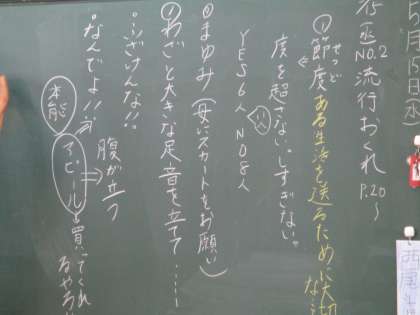 月15日(水)
㋜NO.2 流行おくれ P.20〜
①節度ある生活を送るために大切な
せつど
度を超さない。しすぎない。
YES 6人 NO 8人
②まゆみ(母にスカートをお願い)
①わざと大きな足音を立てて……
・ふざけんな!!
・なんでよ!!
腹が立つ
本能
アピール
買ってくれ
るやろ
西尾